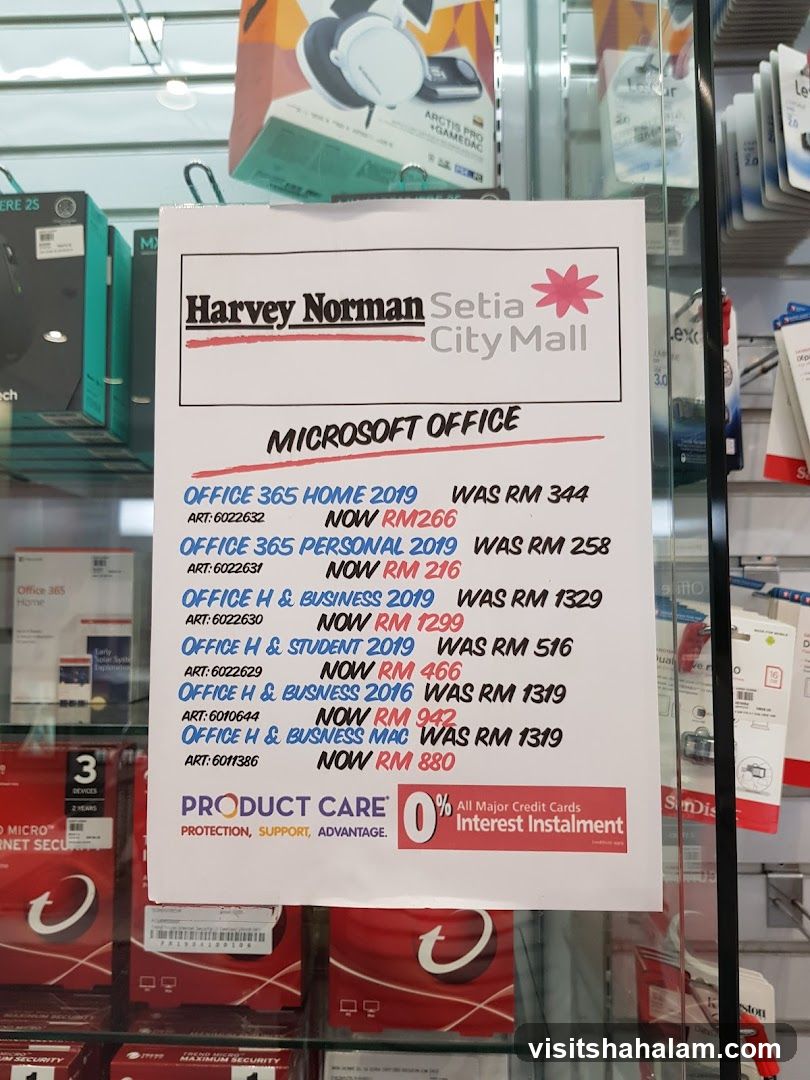 ARCTIS PRO
+GAMEDAC
ERE 2S
MX
Harvey Norman Setia
City Mall
MICROSOFT OFFICE
OFFICE 365 HOME 2019 WAS RM 344
ART: 6022632 NOW RM266
OFFICE 365 PERSONAL 2019 WAS RM 258
ART: 6022631 NOW RM 216
OFFICE H & BUSINESS 2019 WAS RM 1329
ART: 6022630 NOW RM 1299
OFFICE H & STUDENT 2019 WAS RM 516
ART: 6022629 NOW RM 466
OFFICE H & BUSNESS 2016 WAS RM 1319
ART: 6010644 NOW RM 942
OFFICE H & BUSNESS MAC WAS RM 1319
ART: 6011386 NOW RM 880
PRODUCT CARE
PROTECTION, SUPPORT, ADVANTAGE.
0% All Major Credit Cards
Interest Instalment
Office 365
Home
3
DEVICES
2 YEARS
MICRO
RNET SECU
3.0
16
SanDisk
TREND MICRO
MAXIMUM SECURITY
M SECURITY
1
1
visitshahalam.com